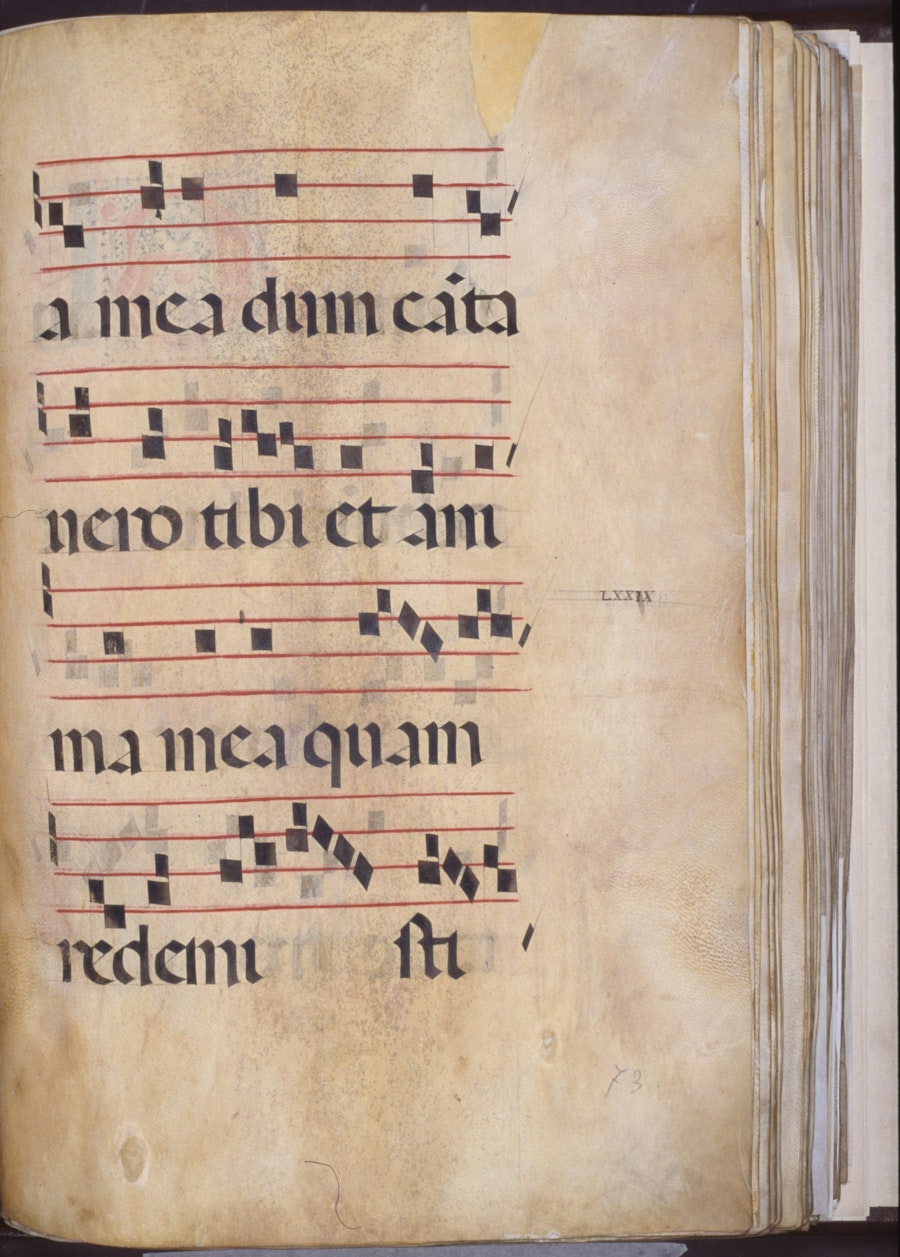 a mea dum cãta
nero tibi et ani
ma mea quam
LXXIX
redemi sti
73